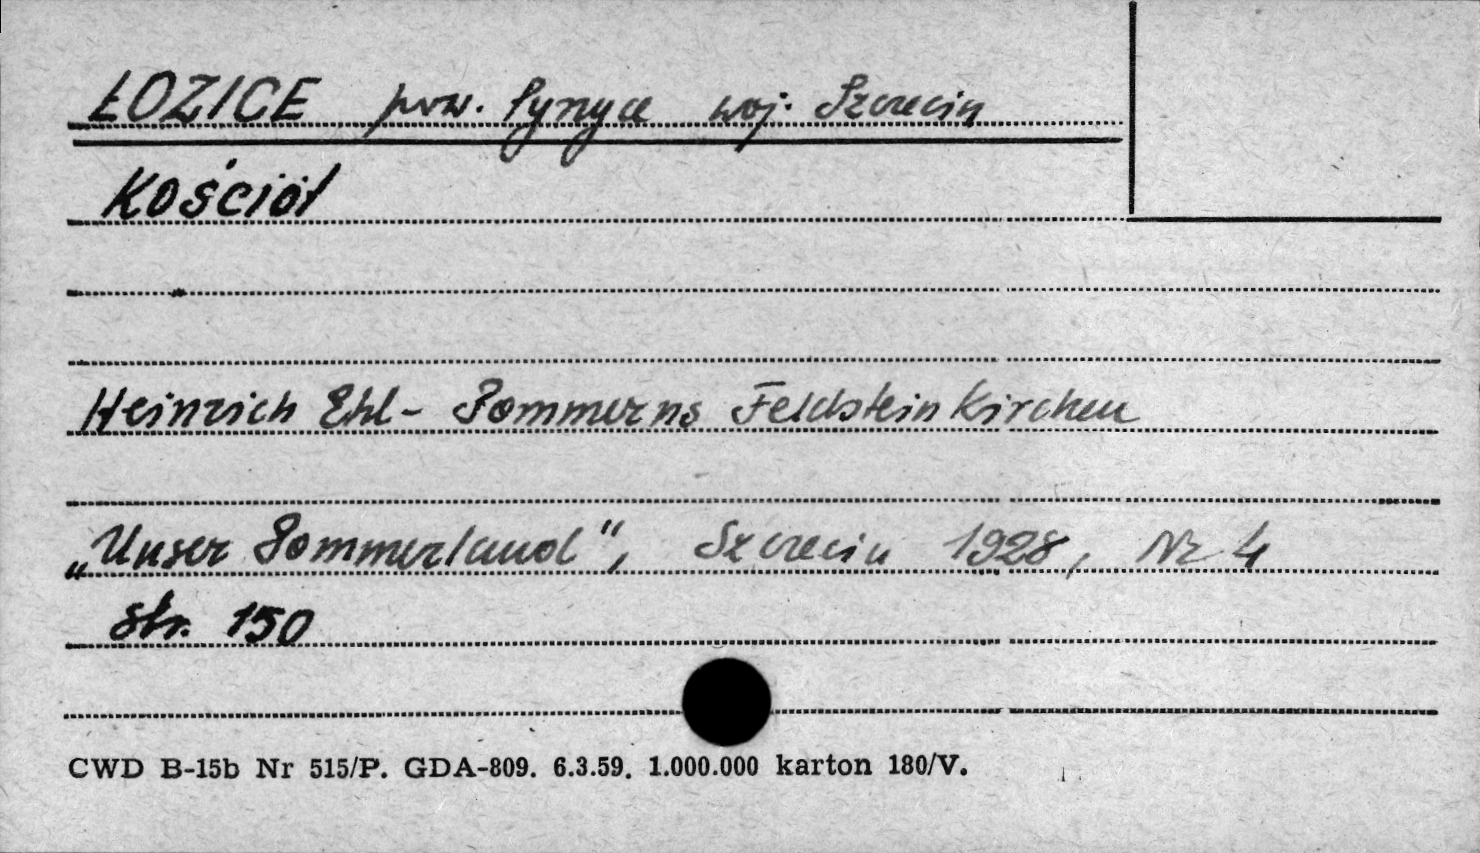 ŁOZICE pow. Pyrzyce woj. Szczecin
Kościół
Heinrich Ehl - Pommerns Feldstein Kirchen
„Unser Pommerland", Szczecin 1928, Nr 4
str. 150
CWD B-15b Nr 515/P. GDA-809. 6.3.59. 1.000.000 karton 180/V.